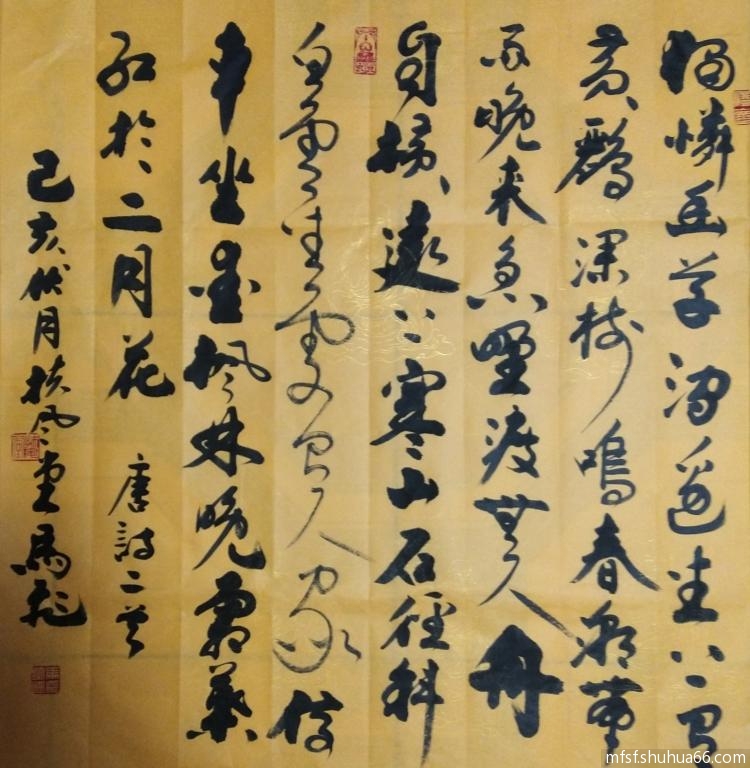 獨憐幽草澗邊生上有
黄鸝深樹鳴春潮帶
雨晚来急野渡無人舟
自横遠上寒山石徑斜
白雲生處有人家停
車坐愛楓林晚霜葉
红於二月花
唐詩二首
己亥伏月扶風堂馬
mfsf.shuhua66.com